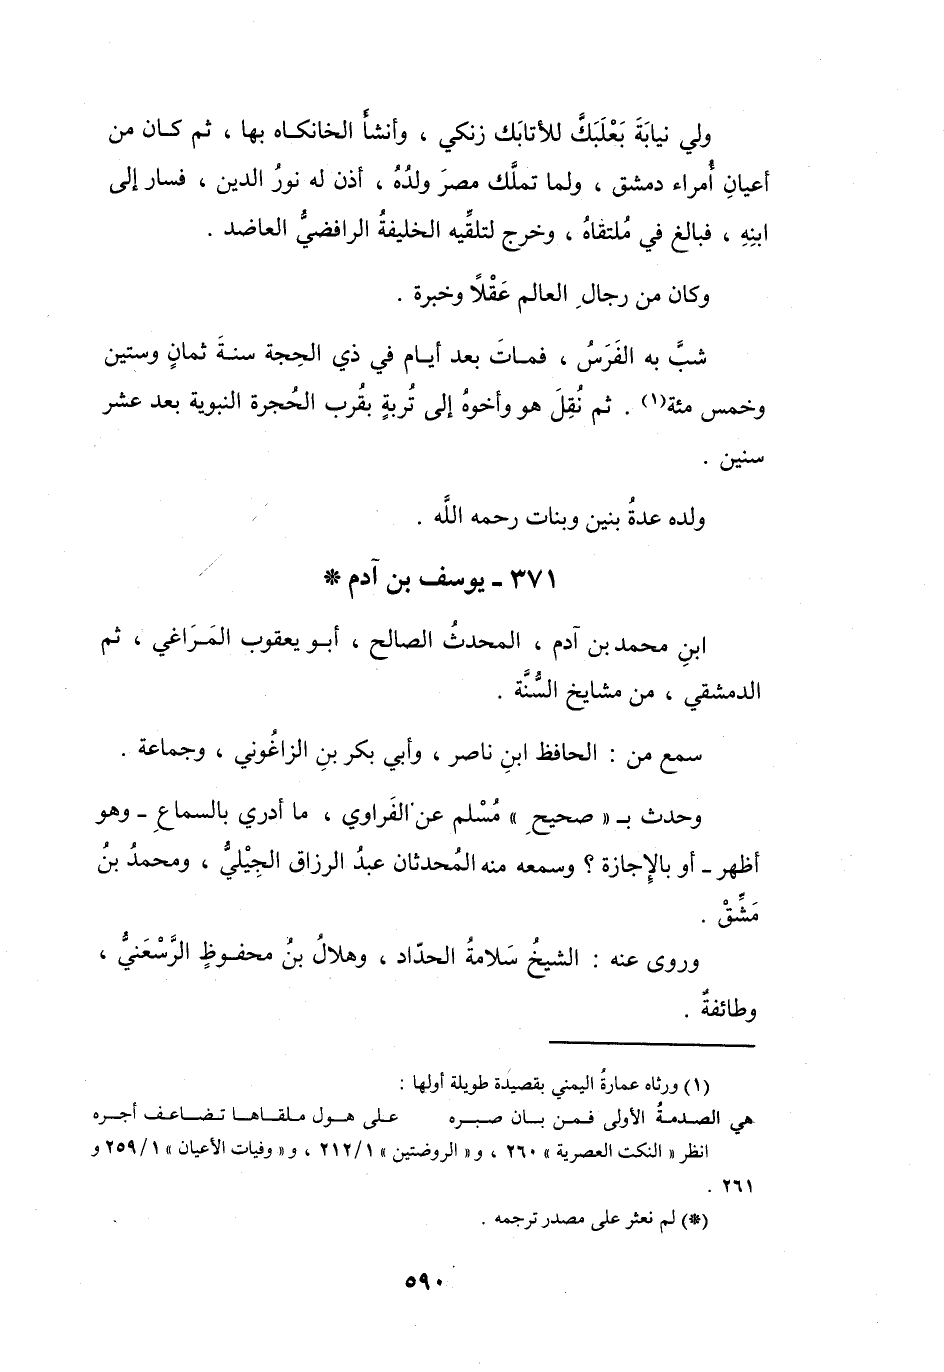 ولي نيابَةَ بَعْلَبَكَّ للأتابَك زنكي ، وأنشأَ الخانكاه بها ، ثم كان من
أعيانِ أُمراء دمشق ، ولما تملَّك مصرَ ولدُهُ ، أذن له نورُ الدين ، فسار إلى
ابنِهِ ، فبالغ في مُلتقاهُ ، وخرج لتلقِّيه الخليفةُ الرافضيُّ العاضد .
وكان من رجالِ العالم عَقْلًا وخبرة .
شبَّ به الفَرَسُ ، فماتَ بعد أيام في ذي الحِجة سنةَ ثمانٍ وستين
وخمس مئة(١) . ثم نُقِلَ هو وأخوهُ إلى تُربةٍ بقُرب الحُجرة النبوية بعد عشر
سنين .
ولده عدةُ بنين وبنات رحمه اللَّه .
٣٧١ ـ يوسف بن آدم *
ابنِ محمد بن آدم ، المحدثُ الصالح ، أبو يعقوب المَرَاغي ، ثم
الدمشقي ، من مشايخ السُّنَّة .
سمع من : الحافظ ابنِ ناصر ، وأبي بكر بنِ الزاغُوني ، وجماعة .
وحدث بـ « صحيحِ » مُسْلم عن الفَراوي ، ما أدري بالسماعِ ـ وهو
أظهر ـ أو بالإِجازة ؟ وسمعه منه المُحدثان عبدُ الرزاق الجِيْليُّ ، ومحمدُ بنُ
مَشِّقْ .
وروى عنه : الشيخُ سَلامةُ الحدّاد ، وهلالُ بنُ محفوظٍ الرَّسْعَنيُّ ،
وطائفةٌ .
(١) ورثاه عمارةُ اليمني بقصيدة طويلة أولها :
هي الصدمةُ الأولى فمن بان صبره على هول ملقاها تضاعف أجره
انظر « النكت العصرية » ٢٦٠ ، و « الروضتين » ٢١٢/١ ، و « وفيات الأعيان » ٢٥٩/١ و
٢٦١ .
(*) لم نعثر على مصدر ترجمه .
٥٩٠